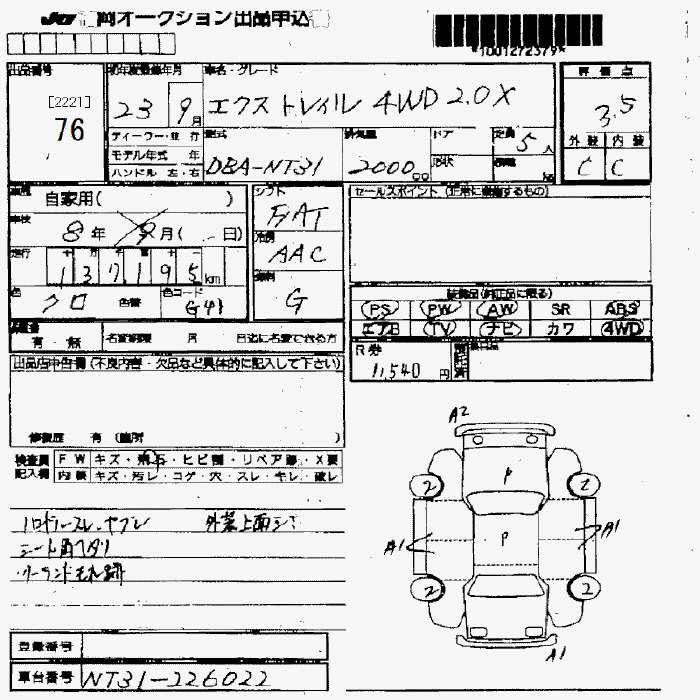 岡オークション出品申込
*1001272379*
出品番号
[2221]
76
初年度登録年月
23 9月
車名・グレード
エクストレイル 4WD 2.0X
評価点
3.5
外装 内装
C C
ディーラー・並行
モデル年式 年
ハンドル 左・右
型式
DBA-NT31
排気量
2000cc
ドア
形状
定員
5人
車歴
自家用( )
車検
8年 9月( 日)
走行
137195km
色
クロ
色替
色コード
G41
シフト
FAT
冷房
AAC
燃料
G
セールスポイント (正常に作動するもの)
装備品(純正品に限る)
PS PW AW SR ABS
エアB TV ナビ カワ 4WD
有・無
名変期限 月 日迄に名変できる方
R券
11,540円
出品店申告欄(不良内容・欠品など具体的に記入して下さい)
修復歴 有 (箇所 )
検査員記入欄
FW キズ・飛石・ヒビ割・リペア跡・X要
内装 キズ・汚レ・コゲ・穴・スレ・キレ・破レ
ハンドルスレ・ヤブレ 外装上面シミ
シート肩ヘタリ
A2
P
P
2
2
2
2
A1
A1
A1
登録番号
車台番号
NT31-226022